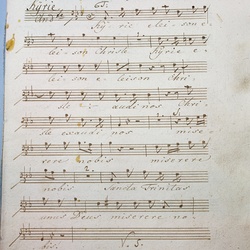 Kyrie
Ky - rie elei - son e
lei - son Christe Kyrie e -
lei - son e - leison Chri -
ste audi nos Chri -
ste exaudi nos mise -
rere nobis miserere
nobis Sancta Trinitas
unus Deus miserere no -
bis. V. S.